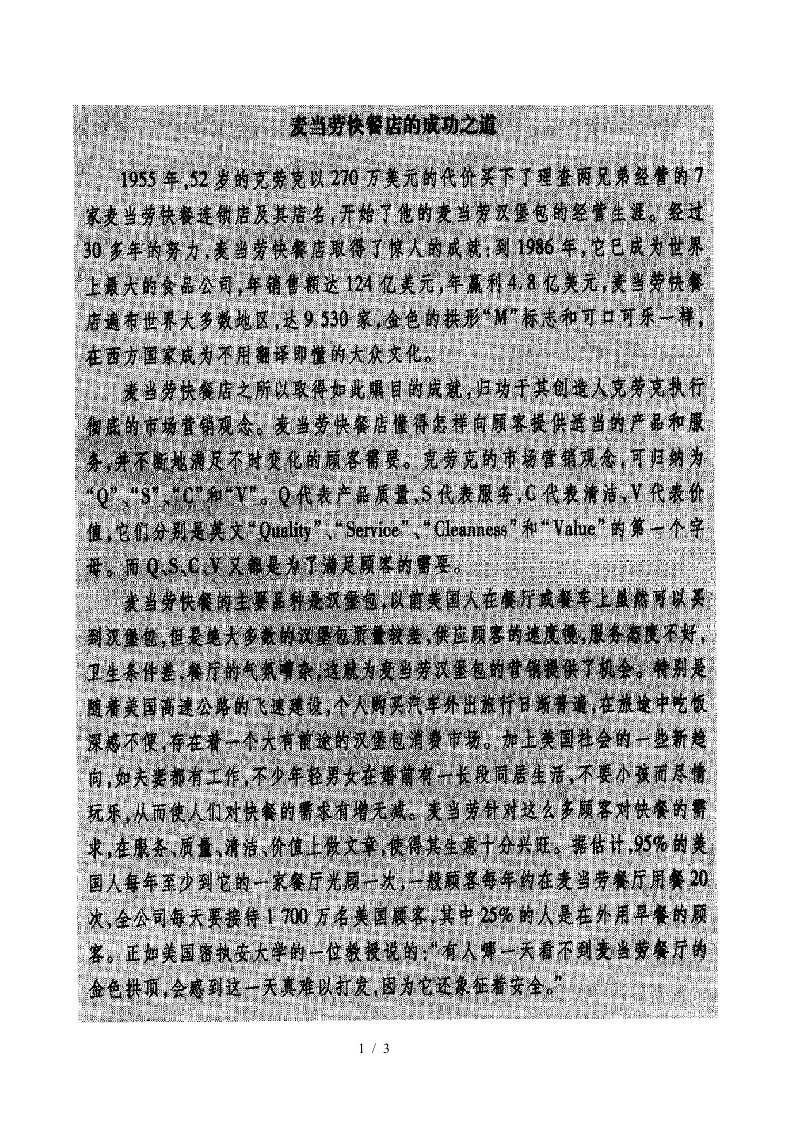 麦当劳快餐店的成功之道
1955 年,52 岁的克劳克以 270 万美元的代价买下了理查两兄弟经营的 7
家麦当劳快餐连锁店及其店名,开始了他的麦当劳汉堡包的经营生涯。经过
30 多年的努力,麦当劳快餐店取得了惊人的成就:到 1986 年,它已成为世界
上最大的食品公司,年销售额达 124 亿美元,年赢利 4.8 亿美元,麦当劳快餐
店遍布世界大多数地区,达 9 530 家,金色的拱形“M”标志和可口可乐一样,
在西方国家成为不用翻译即懂的大众文化。
麦当劳快餐店之所以取得如此瞩目的成就,归功于其创造人克劳克执行
彻底的市场营销观念。麦当劳快餐店懂得怎样向顾客提供适当的产品和服
务,并不断地满足不时变化的顾客需要。克劳克的市场营销观念,可归纳为
“Q”、“S”、“C”和“V”。Q 代表产品质量,S 代表服务,C 代表清洁,V 代表价
值,它们分别是英文“Quality”、“Service”、“Cleanness”和“Value”的第一个字
母。而 Q、S、C、V 又都是为了满足顾客的需要。
麦当劳快餐的主要品种是汉堡包,以前美国人在餐厅或餐车上虽然可以买
到汉堡包,但是绝大多数的汉堡包质量较差,供应顾客的速度慢,服务态度不好,
卫生条件差,餐厅的气氛嘈杂,这就为麦当劳汉堡包的营销提供了机会。特别是
随着美国高速公路的飞速建设,个人购买汽车外出旅行日渐普遍,在旅途中吃饭
深感不便,存在着一个大有前途的汉堡包消费市场。加上美国社会的一些新趋
向,如夫妻都有工作,不少年轻男女在婚前有一长段同居生活,不要小孩而尽情
玩乐,从而使人们对快餐的需求有增无减。麦当劳针对这么多顾客对快餐的需
求,在服务、质量、清洁、价值上做文章,使得其生意十分兴旺。据估计,95%的美
国人每年至少到它的一家餐厅光顾一次,一般顾客每年约在麦当劳餐厅用餐 20
次,全公司每天要接待 1 700 万名美国顾客,其中 25%的人是在外用早餐的顾
客。正如美国密执安大学的一位教授说的:“有人哪一天看不到麦当劳餐厅的
金色拱顶,会感到这一天真难以打发,因为它还象征着安全。”
1 / 3